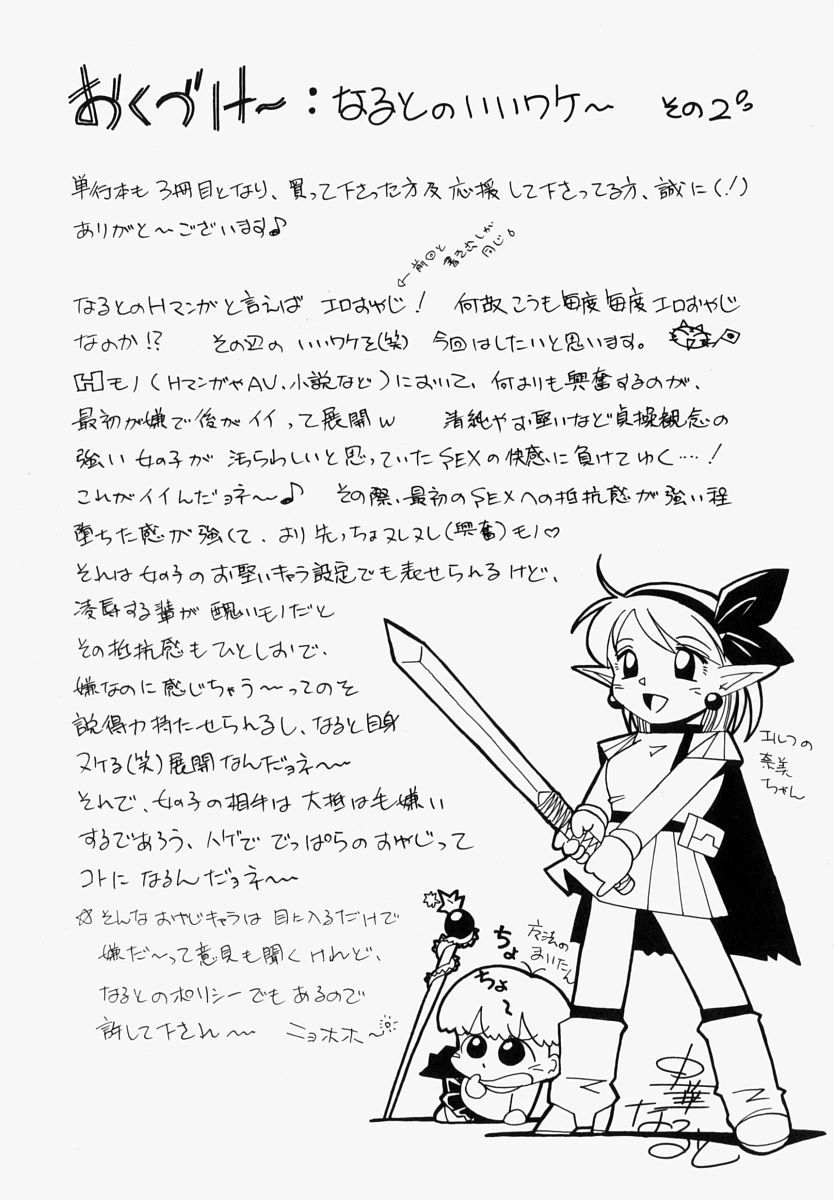 おくづけ〜：なるとのいいワケ〜 その2
単行本も3冊目となり、買って下さった方及応援して下さってる方、誠に(！)
ありがと〜ございます♪
←前回と
書き出しが
同じ。
なるとのHマンガと言えば エロおやじ！ 何故こうも毎度毎度エロおやじ
なのか!? その辺のいいワケを(笑) 今回はしたいと思います。
Hモノ(HマンガやAV、小説など)において、何よりも興奮するのが、
最初が嫌で後がイイって展開w 清純やお堅いなど貞操観念の
強い女の子が 汚らわしいと思っていたSEXの快感に負けてゆく…！
これがイイんだョネ〜♪ その際、最初のSEXへの抵抗感が強い程
堕ちた感が強くて、より先っちょヌレヌレ(興奮)モノ♡
それは女の子のお堅いキャラ設定でも表せられるけど、
凌辱する輩が 醜いモノだと
その抵抗感もひとしおで、
嫌なのに感じちゃう〜ってのを
説得力持たせられるし、なると自身
ヌケる(笑)展開なんだョネ〜
それで、女の子の相手は 大抵は毛嫌い
するであろう、ハゲで でっぱらのおやじって
コトに なるんだョネ〜
☆そんなおやじキャラは 目に入るだけで
嫌だ〜って意見も聞くけれど、
なるとのポリシーでもあるので
許して下され〜 ニョホホ〜
エルフの
奈美
ちゃん
魔法の
まいたん
ちょ
ちょ〜
中華
なると